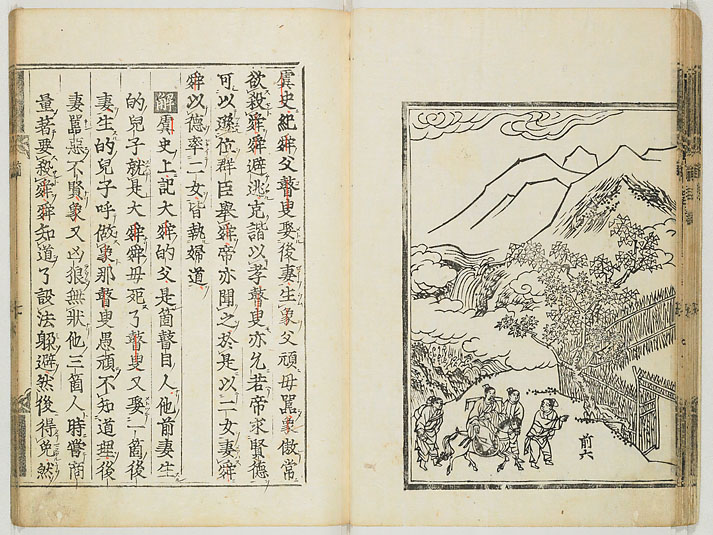 前六
虞史紀舜父瞽叟娶後妻生象父頑母嚚象傲常
欲殺舜舜避逃克諧以孝瞽叟亦允若帝求賢德
可以遜位群臣舉舜帝亦聞之於是以二女妻舜
舜以德率二女皆執婦道
解虞史上記大舜的父是箇瞽目人他前妻生
的兒子就是大舜舜母死了瞽叟又娶一箇後
妻生的兒子呼做象那瞽叟愚頑不知道理後
妻嚚惡不賢象又凶狠無狀他三箇人時嘗商
量著要殺舜舜知道了設法躲避然後得免然